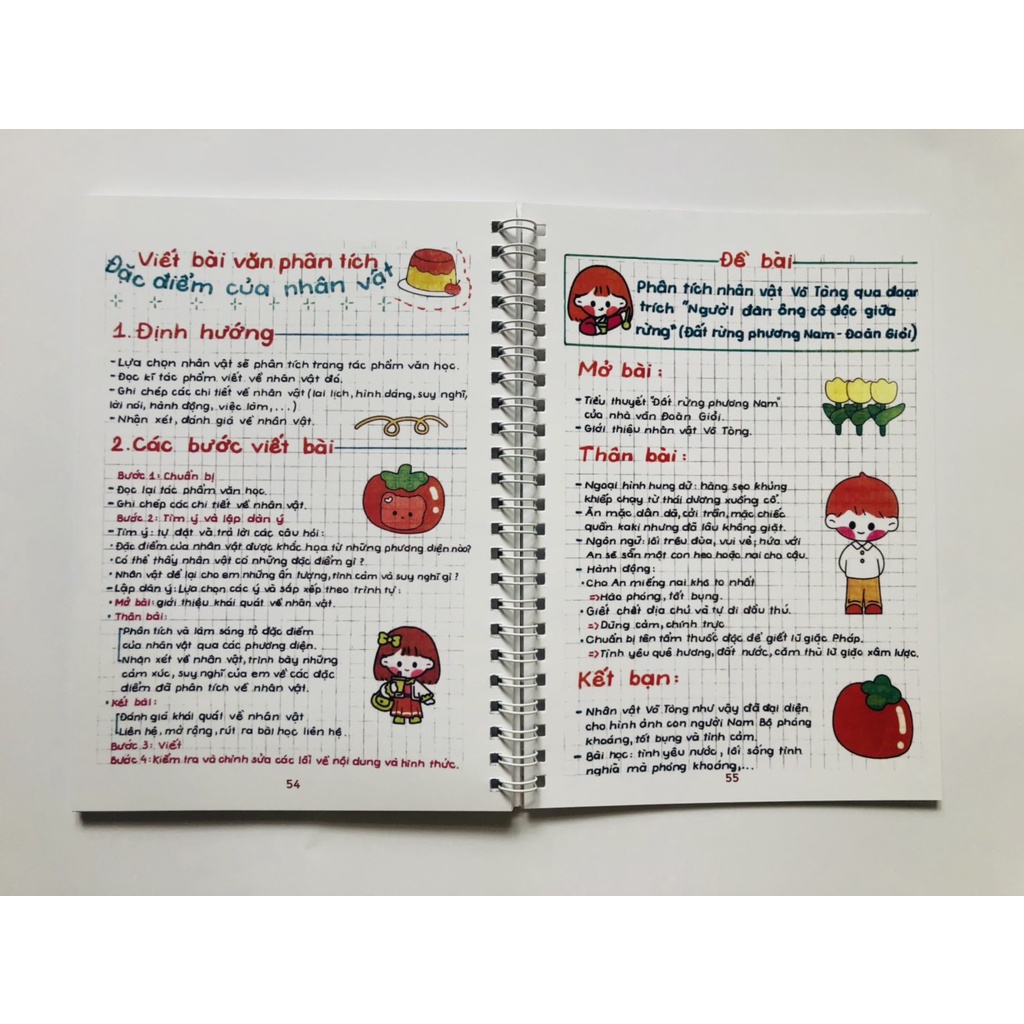 Viết bài văn phân tích
Đặc điểm của nhân vật
1. Định hướng
- Lựa chọn nhân vật sẽ phân tích trang tác phẩm văn học.
- Đọc kĩ tác phẩm viết về nhân vật đó.
- Ghi chép các chi tiết về nhân vật (lai lịch, hình dáng, suy nghĩ,
lời nói, hành động, việc làm, ...)
- Nhận xét, đánh giá về nhân vật.
2. Các bước viết bài
Bước 1: Chuẩn bị
- Đọc lại tác phẩm văn học.
- Ghi chép các chi tiết về nhân vật.
Bước 2: Tìm ý và lập dàn ý
- Tìm ý: tự đặt và trả lời các câu hỏi:
· Đặc điểm của nhân vật được khắc họa từ những phương diện nào?
· Có thể thấy nhân vật có những đặc điểm gì?
· Nhân vật để lại cho em những ấn tượng, tình cảm và suy nghĩ gì?
- Lập dàn ý: Lựa chọn các ý và sắp xếp theo trình tự:
· Mở bài: giới thiệu khái quát về nhân vật.
· Thân bài:
Phân tích và làm sáng tỏ đặc điểm
của nhân vật qua các phương diện.
Nhận xét về nhân vật, trình bày những
cảm xúc, suy nghĩ của em về các đặc
điểm đã phân tích về nhân vật.
· Kết bài:
Đánh giá khái quát về nhân vật
Liên hệ, mở rộng, rút ra bài học liên hệ.
Bước 3: Viết
Bước 4: Kiểm tra và chỉnh sửa các lỗi về nội dung và hình thức.
54
Đề bài
Phân tích nhân vật Võ Tòng qua đoạn
trích "Người đàn ông cô độc giữa
rừng" (Đất rừng phương Nam - Đoàn Giỏi)
Mở bài:
- Tiểu thuyết "Đất rừng phương Nam"
của nhà văn Đoàn Giỏi.
- Giới thiệu nhân vật Võ Tòng.
Thân bài:
- Ngoại hình hung dữ: hàng sẹo khủng
khiếp chạy từ thái dương xuống cổ.
- Ăn mặc dân dã, cởi trần, mặc chiếc
quần kaki nhưng đã lâu không giặt.
- Ngôn ngữ: lối trêu đùa, vui vẻ; hứa với
An sẽ săn một con heo hoặc nai cho cậu.
- Hành động:
· Cho An miếng nai khô to nhất
=> Hào phóng, tốt bụng.
· Giết chết địa chủ và tự đi đầu thú.
=> Dũng cảm, chính trực
· Chuẩn bị tên tẩm thuốc độc để giết lũ giặc Pháp.
=> Tình yêu quê hương, đất nước, căm thù lũ giặc xâm lược.
Kết bạn:
- Nhân vật Võ Tòng như vậy đã đại diện
cho hình ảnh con người Nam Bộ phóng
khoáng, tốt bụng và tình cảm.
- Bài học: tình yêu nước, lối sống tình
nghĩa mà phóng khoáng,...
55